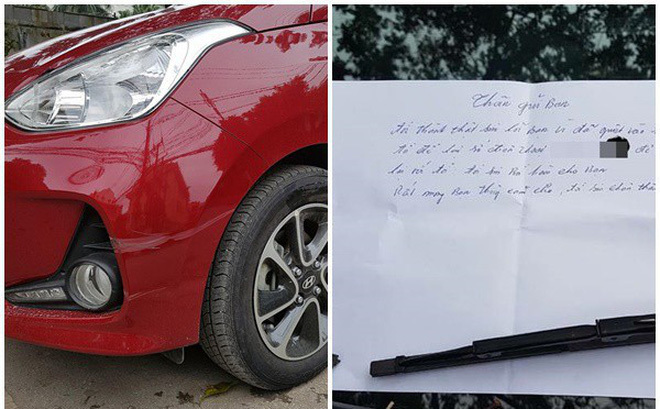 Thân gửi Bạn
tớ thành thật xin lỗi Bạn vì đã quệt vào
tớ để lại số điện thoại để
lại tớ tớ xin cho Bạn
Rất mong Bạn thông cảm cho, tớ xin chân